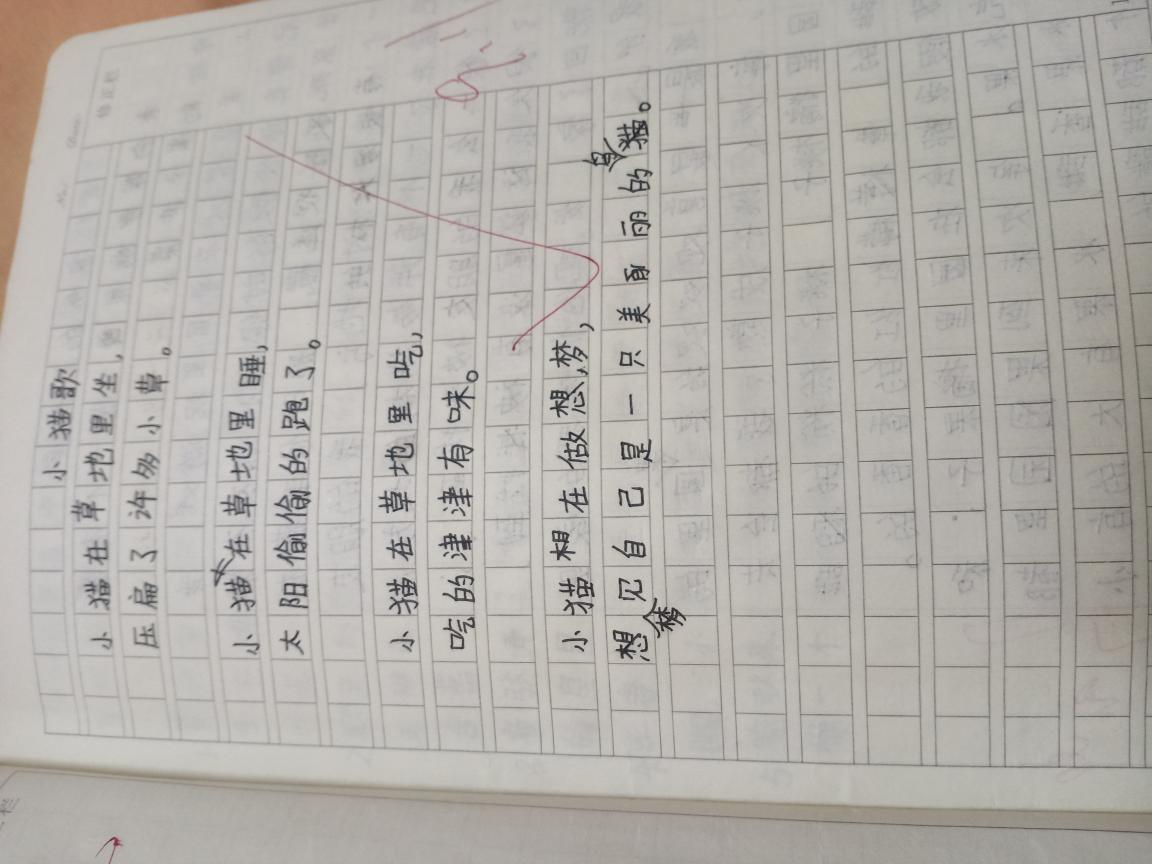 No.
Date
小猫歌
小猫在草地里坐，
压扁了许多小草。
小猫在草地里睡，
太阳偷偷的跑了。
小猫在草地里吃，
吃的津津有味。
小猫想在做想，梦，
想梦见自己是一只美丽的猫。